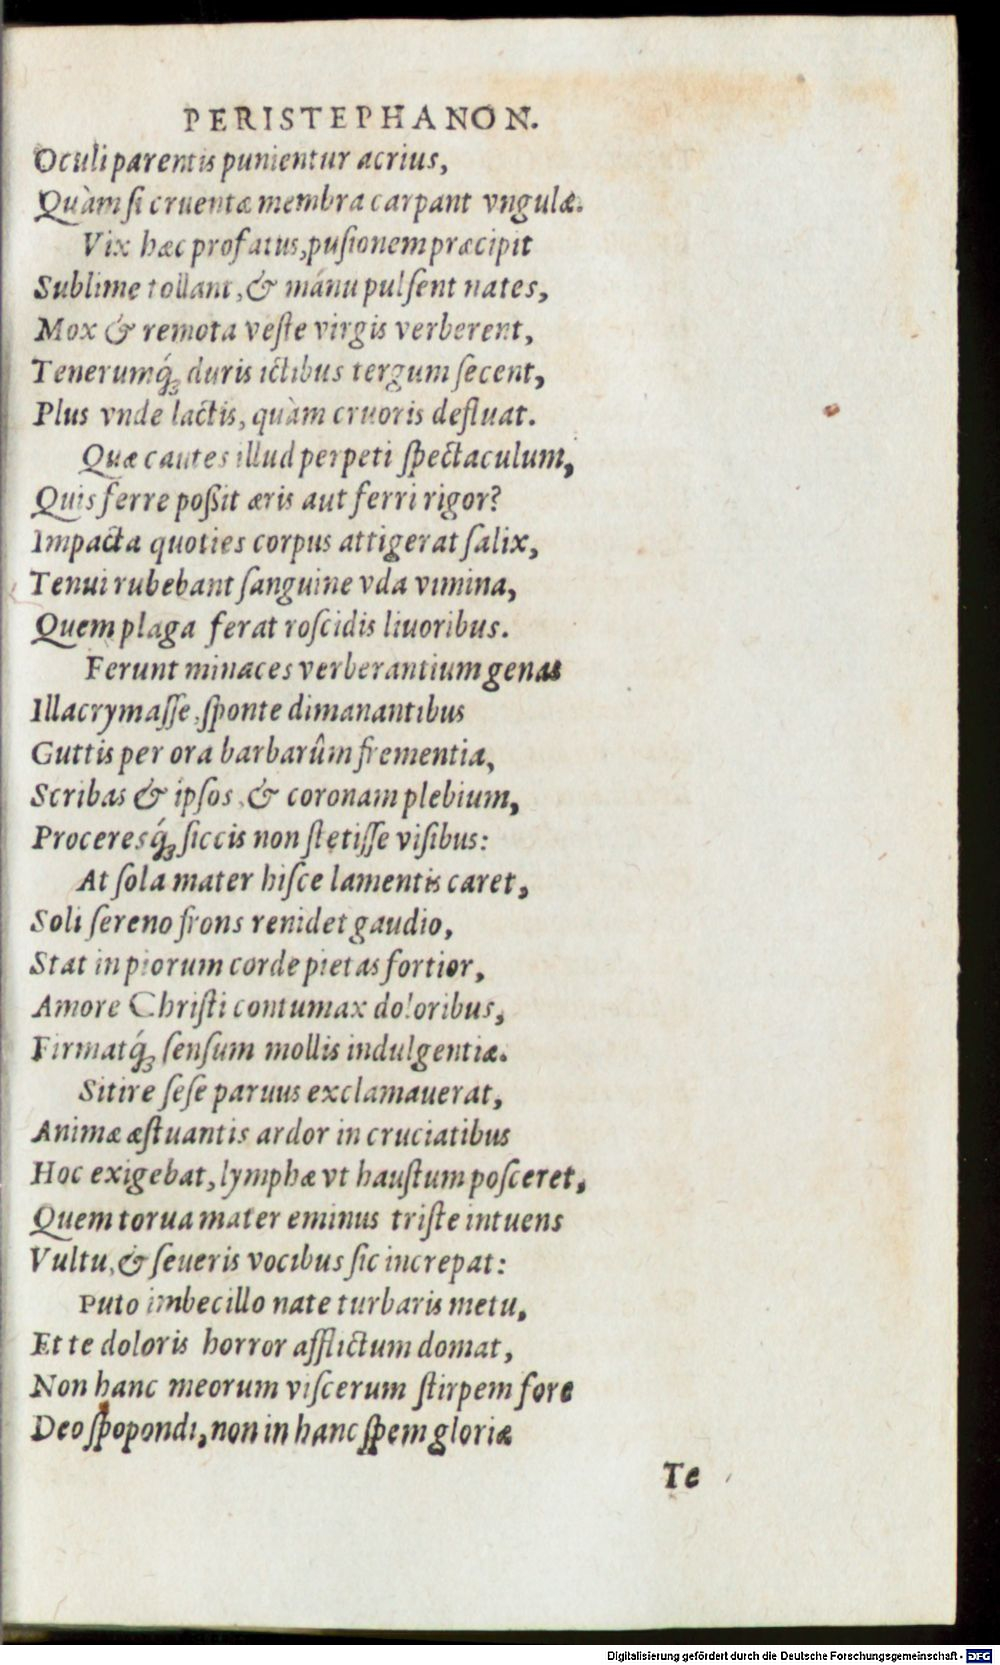 PERISTEPHANON.
Oculi parentis punientur acrius,
Quàm si cruentæ membra carpant vngulæ.
Vix hæc profatus, pusionem præcipit
Sublime tollant, & manu pulsent nates,
Mox & remota veste virgis verberent,
Tenerumq́; duris ictibus tergum secent,
Plus vnde lactis, quàm cruoris defluat.
Quæ cautes illud perpeti spectaculum,
Quis ferre poßit æris aut ferri rigor?
Impacta quoties corpus attigerat salix,
Tenui rubebant sanguine vda vimina,
Quem plaga ferat roscidis liuoribus.
Ferunt minaces verberantium genas
Illacrymasse, sponte dimanantibus
Guttis per ora barbarûm frementia,
Scribas & ipsos, & coronam plebium,
Proceresq́; siccis non stetisse visibus:
At sola mater hisce lamentis caret,
Soli sereno frons renidet gaudio,
Stat in piorum corde pietas fortior,
Amore Christi contumax doloribus,
Firmatq́; sensum mollis indulgentiæ.
Sitire sese paruus exclamauerat,
Animæ æstuantis ardor in cruciatibus
Hoc exigebat, lymphæ vt haustum posceret,
Quem torua mater eminus triste intuens
Vultu, & seueris vocibus sic increpat:
Puto imbecillo nate turbaris metu,
Et te doloris horror afflictum domat,
Non hanc meorum viscerum stirpem fore
Deo spopondi, non in hanc spem gloriæ
Te
Digitalisierung gefördert durch die Deutsche Forschungsgemeinschaft - DFG